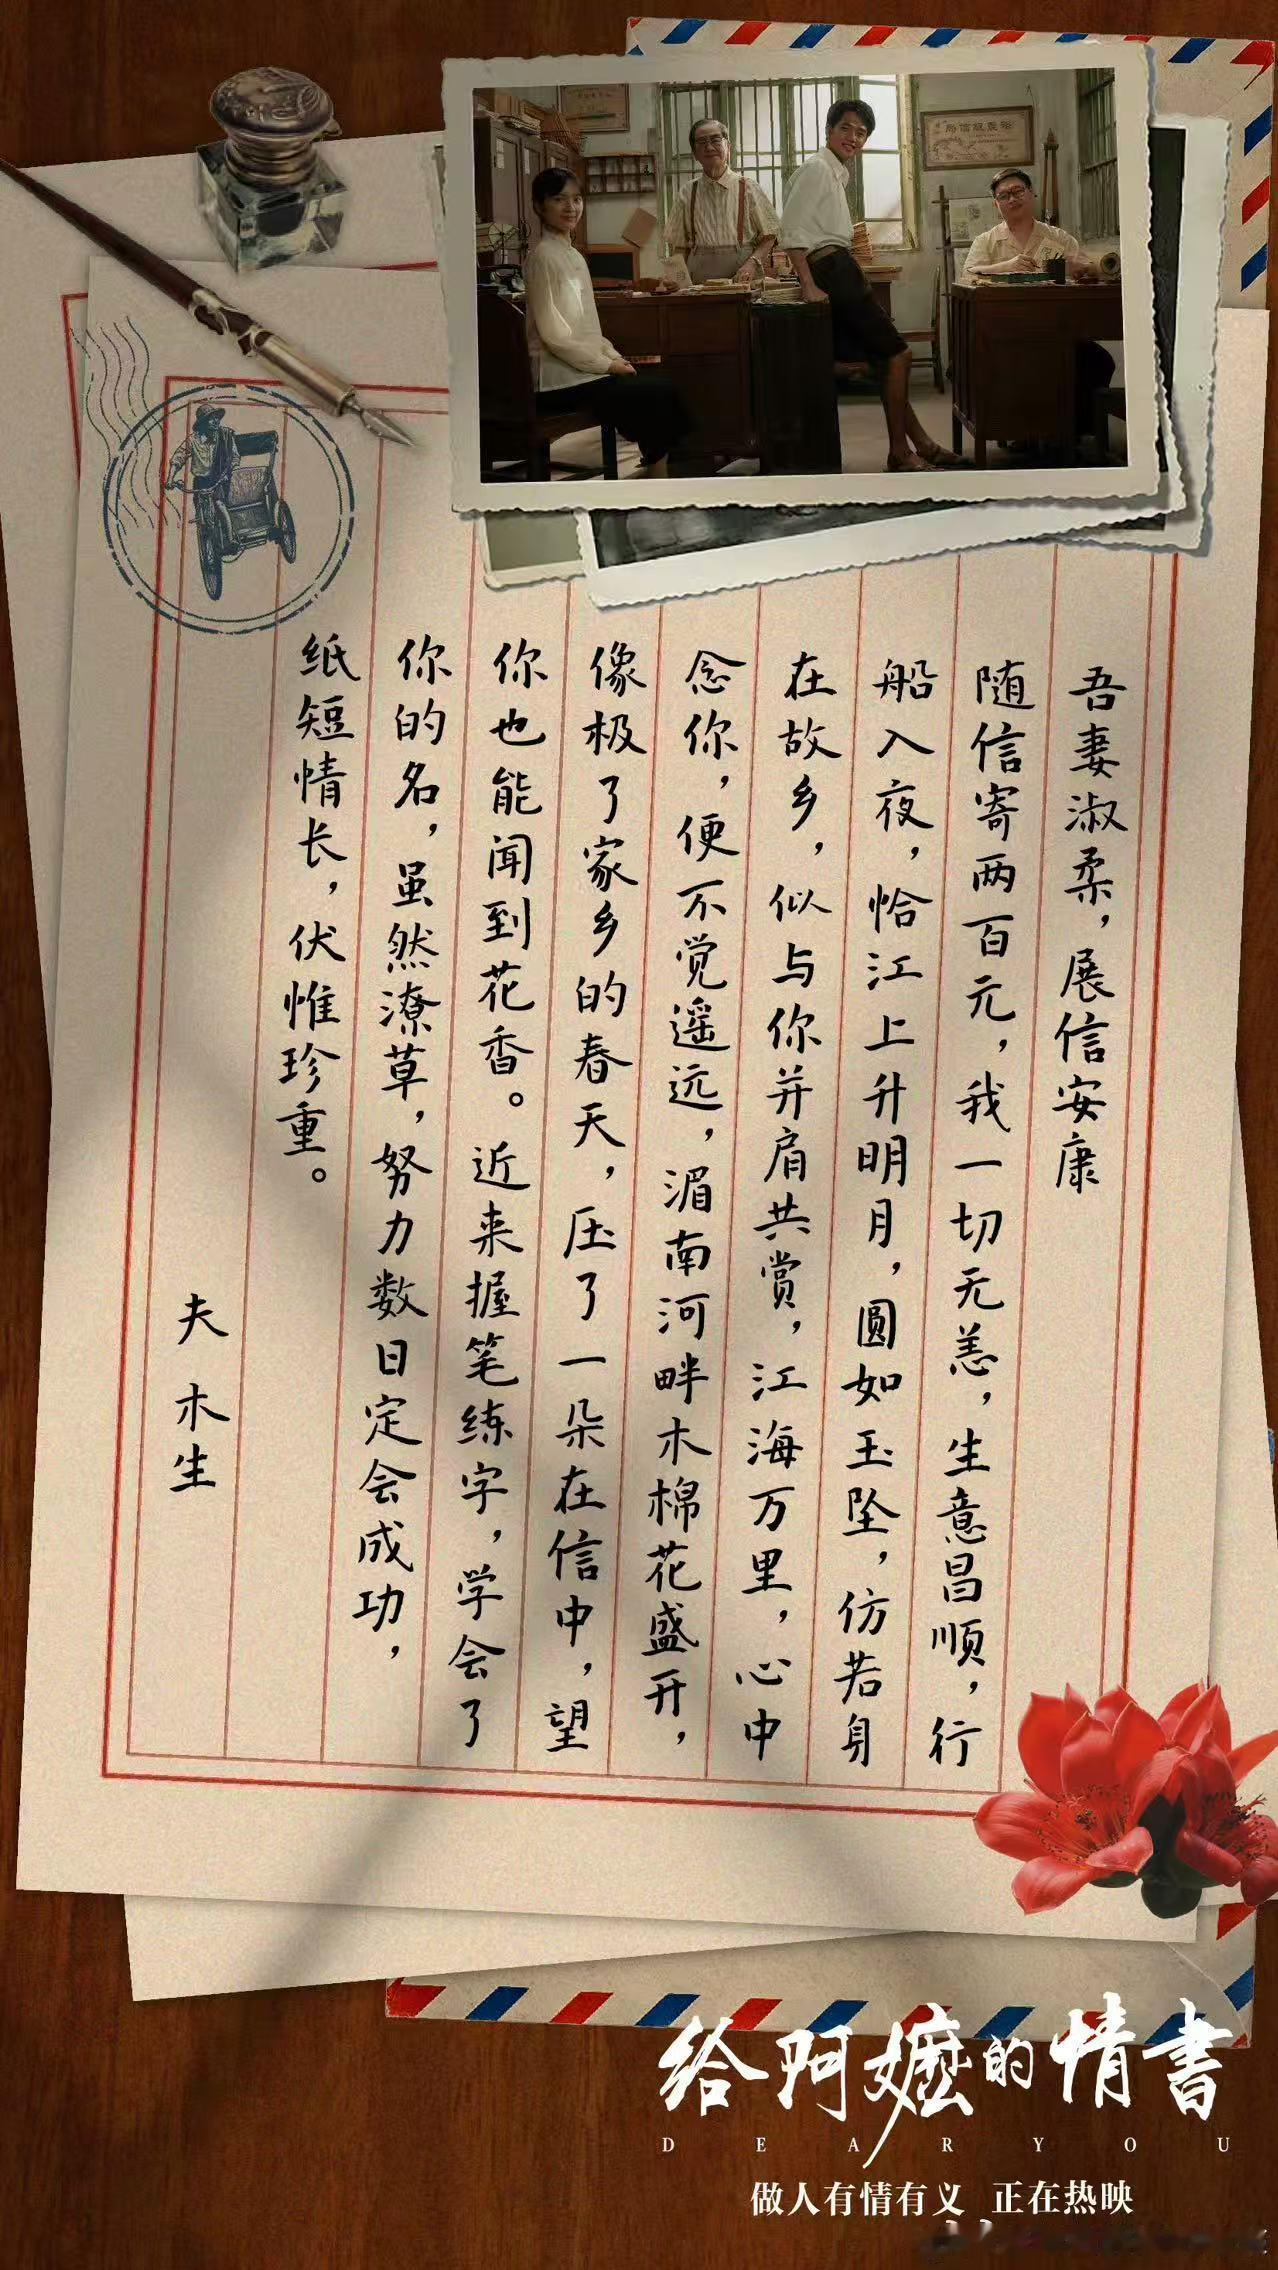 吾妻淑柔，展信安康
随信寄两百元，我一切无恙，生意昌顺，行
船入夜，恰江上升明月，圆如玉坠，仿若身
在故乡，似与你并肩共赏，江海万里，心中
念你，便不觉遥远，湄南河畔木棉花盛开，
像极了家乡的春天，压了一朵在信中，望
你也能闻到花香。近来握笔练字，学会了
你的名，虽然潦草，努力数日定会成功，
纸短情长，伏惟珍重。
夫 木生
给阿嬷的情書
DEAR YOU
做人有情有义 正在热映